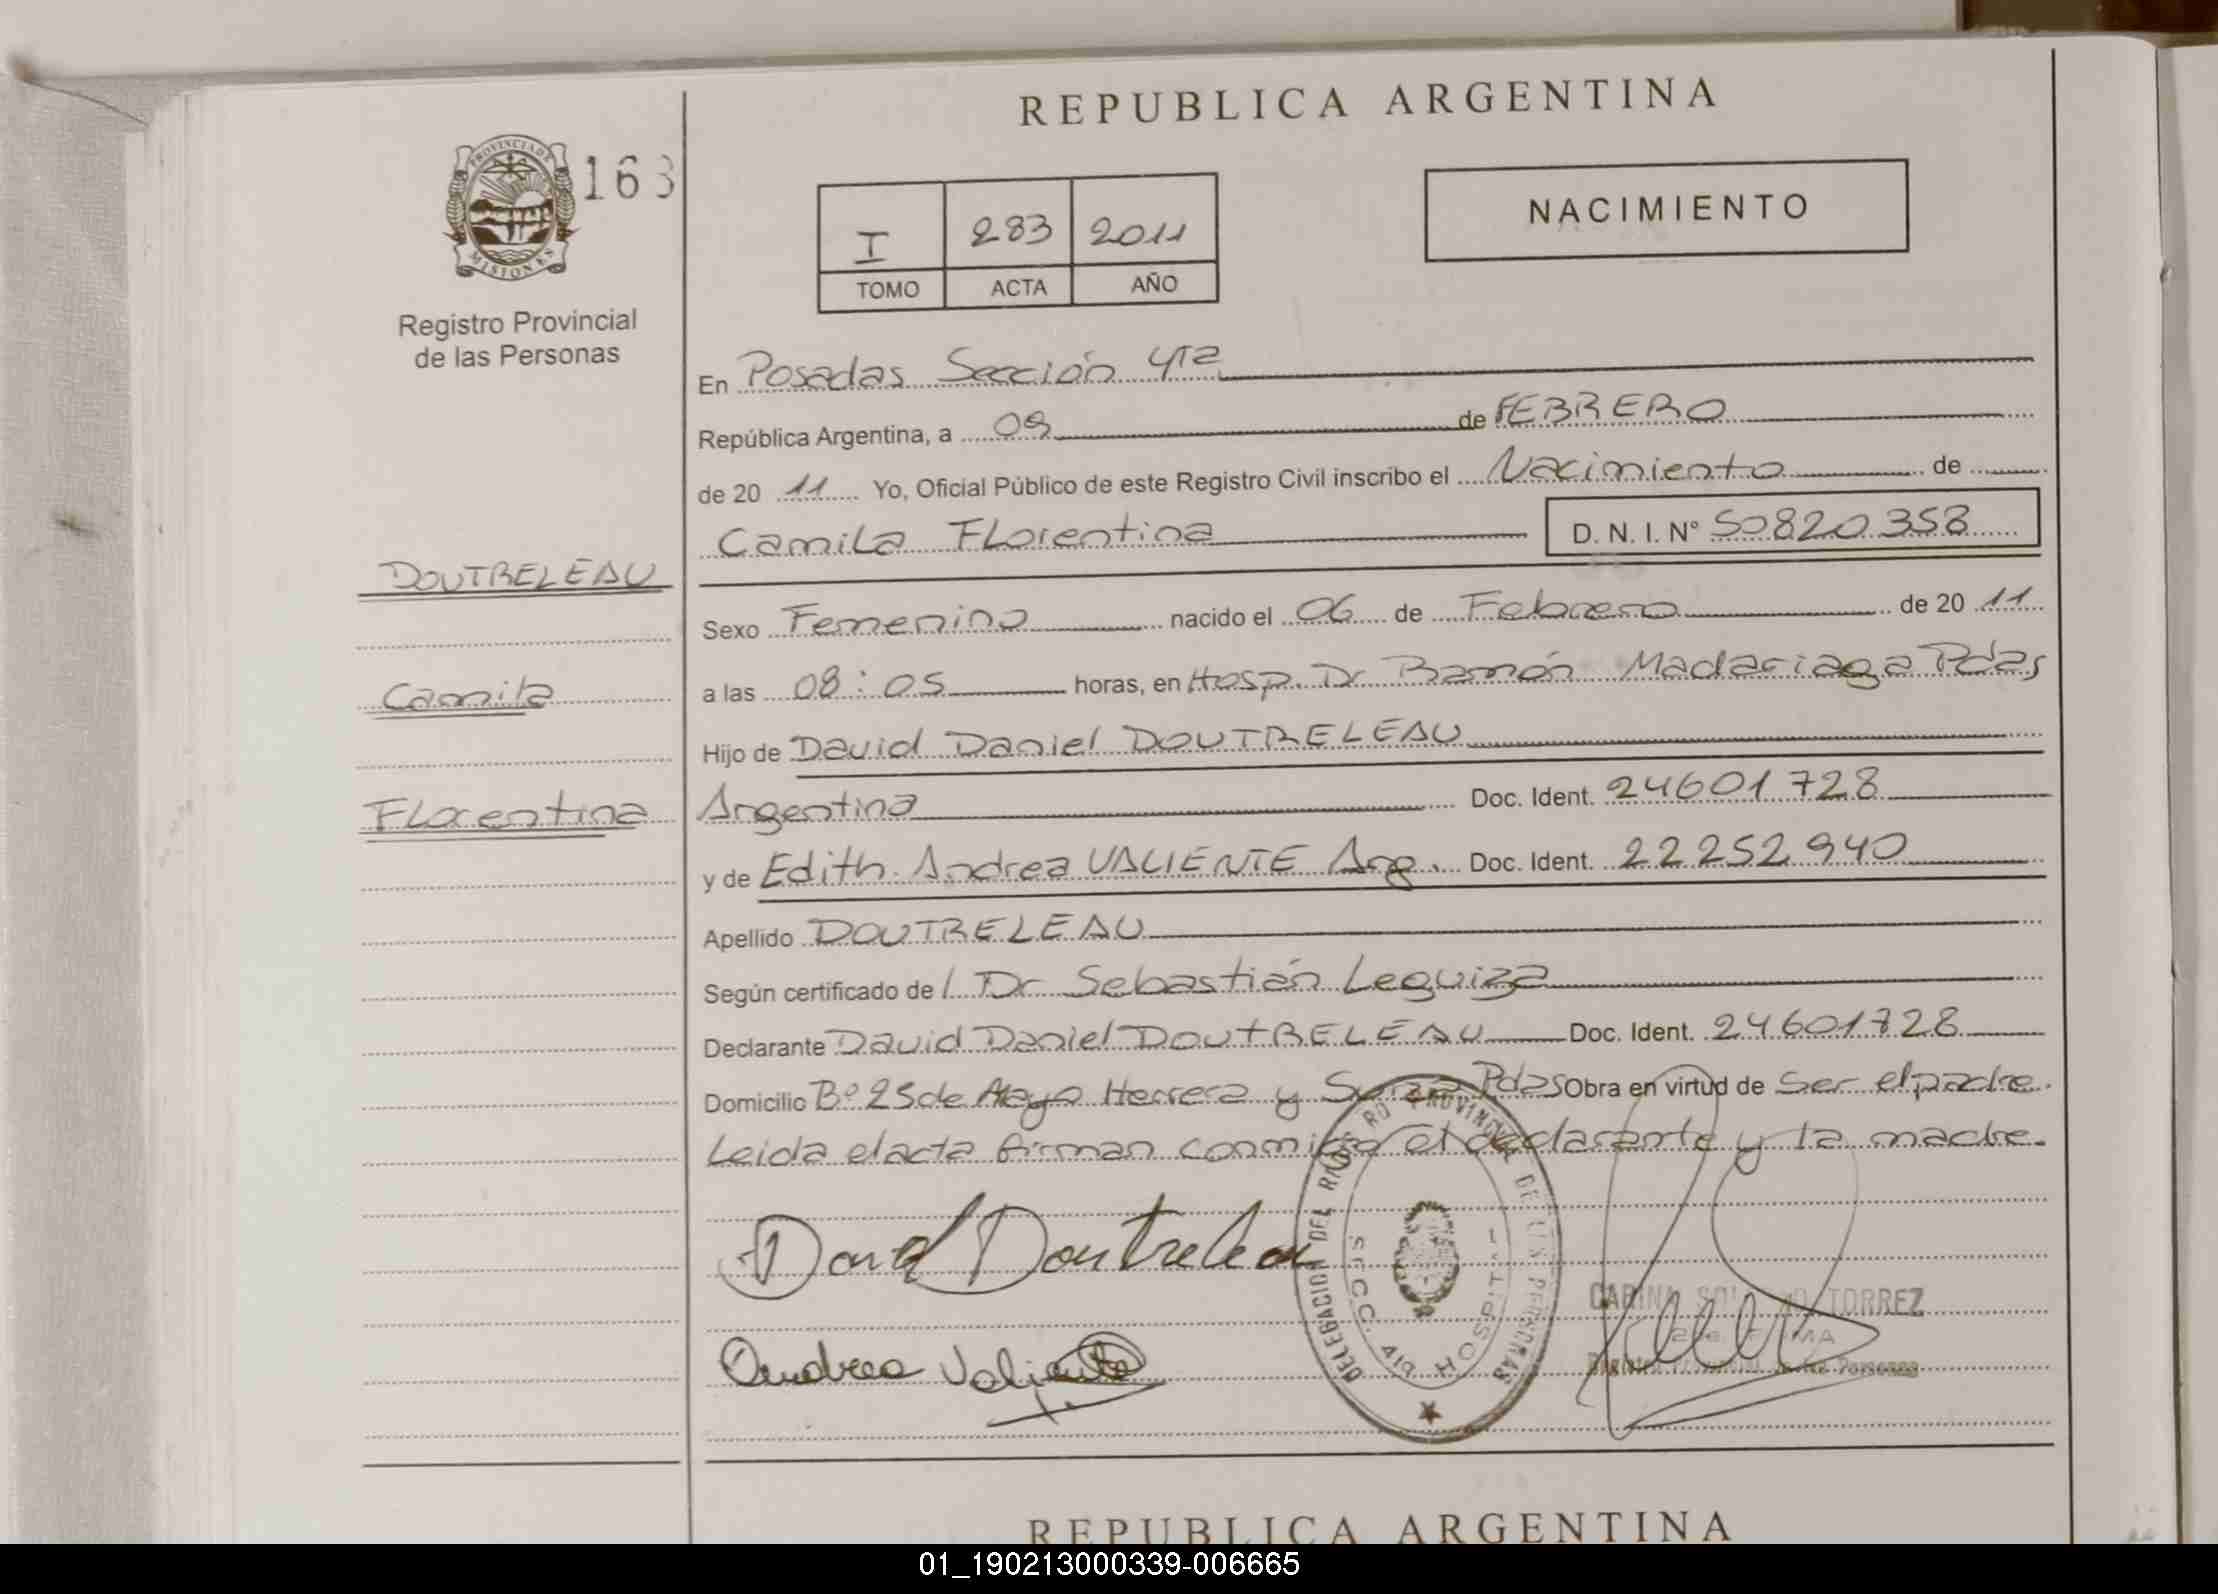 REPUBLICA ARGENTINA
PROVINCIA DE
MISIONES
163
Registro Provincial
de las Personas
I 283 2011
TOMO ACTA AÑO
NACIMIENTO
En Posadas Sección 4ta
República Argentina, a 09 de FEBRERO
de 20 11 Yo, Oficial Público de este Registro Civil inscribo el Nacimiento de
Camila Florentina D. N. I. N° 50820358
DOUTRELEAU
Sexo Femenino nacido el 06 de Febrero de 20 11
Camila
a las 08:05 horas, en Hosp. Dr Ramón Madariaga Pdas
Hijo de David Daniel DOUTRELEAU
Florentina
Argentino Doc. Ident. 24601728
y de Edith Andrea VALIENTE Arg. Doc. Ident. 22252940
Apellido DOUTRELEAU
Según certificado de / Dr Sebastián Leguiza
Declarante David Daniel DOUTRELEAU Doc. Ident. 24601728
Domicilio B° 25 de Mayo Herrera y Pdas Obra en virtud de Ser el padre
Leida el acta firman conmigo el declarante y la madre.
David Doutreleau
Andrea Valiente
DELEGACION DEL REGISTRO PROVINCIAL DE LAS PERSONAS
SECC. 4ta HOSPITAL
TORREZ
FIRMA
Registro Provincial de las Personas
REPUBLICA ARGENTINA
01_190213000339-006665